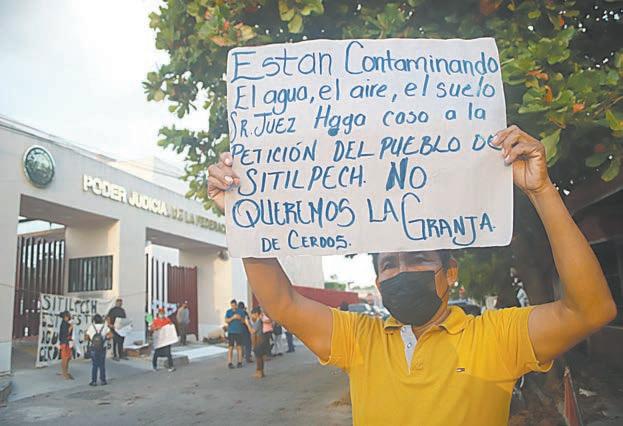 Estan Contaminando
El agua, el aire, el suelo
Sr. Juez Haga caso a la
PETICIÓN DEL PUEBLO DE
SITILPECH. NO
QUEREMOS LA GRANJA.
DE CERDOS.
PODER JUDICIAL DE LA FEDERACIÓN
SITILPECH